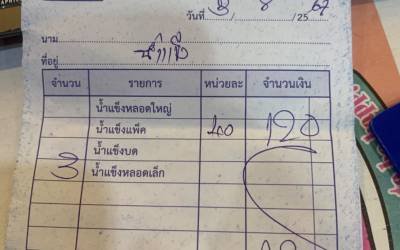 วันที่ 3 / 8 / 25 67
นาม
ที่อยู่ น้ำแข็ง
จำนวน รายการ หน่วยละ จำนวนเงิน
น้ำแข็งหลอดใหญ่
น้ำแข็งแพ็ค 40 120
น้ำแข็งบด
3 น้ำแข็งหลอดเล็ก